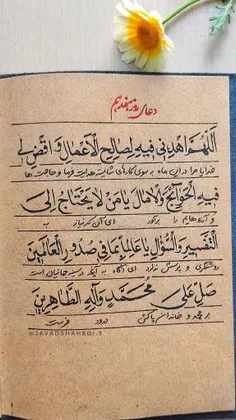 دعای روز هفدهم
اَللّهُمَّ اهْدِنی فیهِ لِصالِحِ الْاَعْمالِ وَ اقْضِ لی
خدایا مرا در این ماه به سوی کارهای شایسته هدایت فرما و حاجت ها
فیهِ الْحَوآئِجَ وَالْامالَ یا مَنْ لا یَحْتاجُ اِلَی
و آرزوهایم را برآور ای آن که نیاز به
التَّفْسیرِ وَالسُّؤالِ یا عالِماً بِما فی صُدُورِ الْعالَمینَ
روشنگری و پرسش ندارد ای آگاه به آنچه در سینه جهانیان است
صَلِّ عَلی مُحَمَّدٍ وَآلِهِ الطّاهِرینَ
بر محمد و خاندان پاکش درود فرست
@JAVADSHAHBGI.3